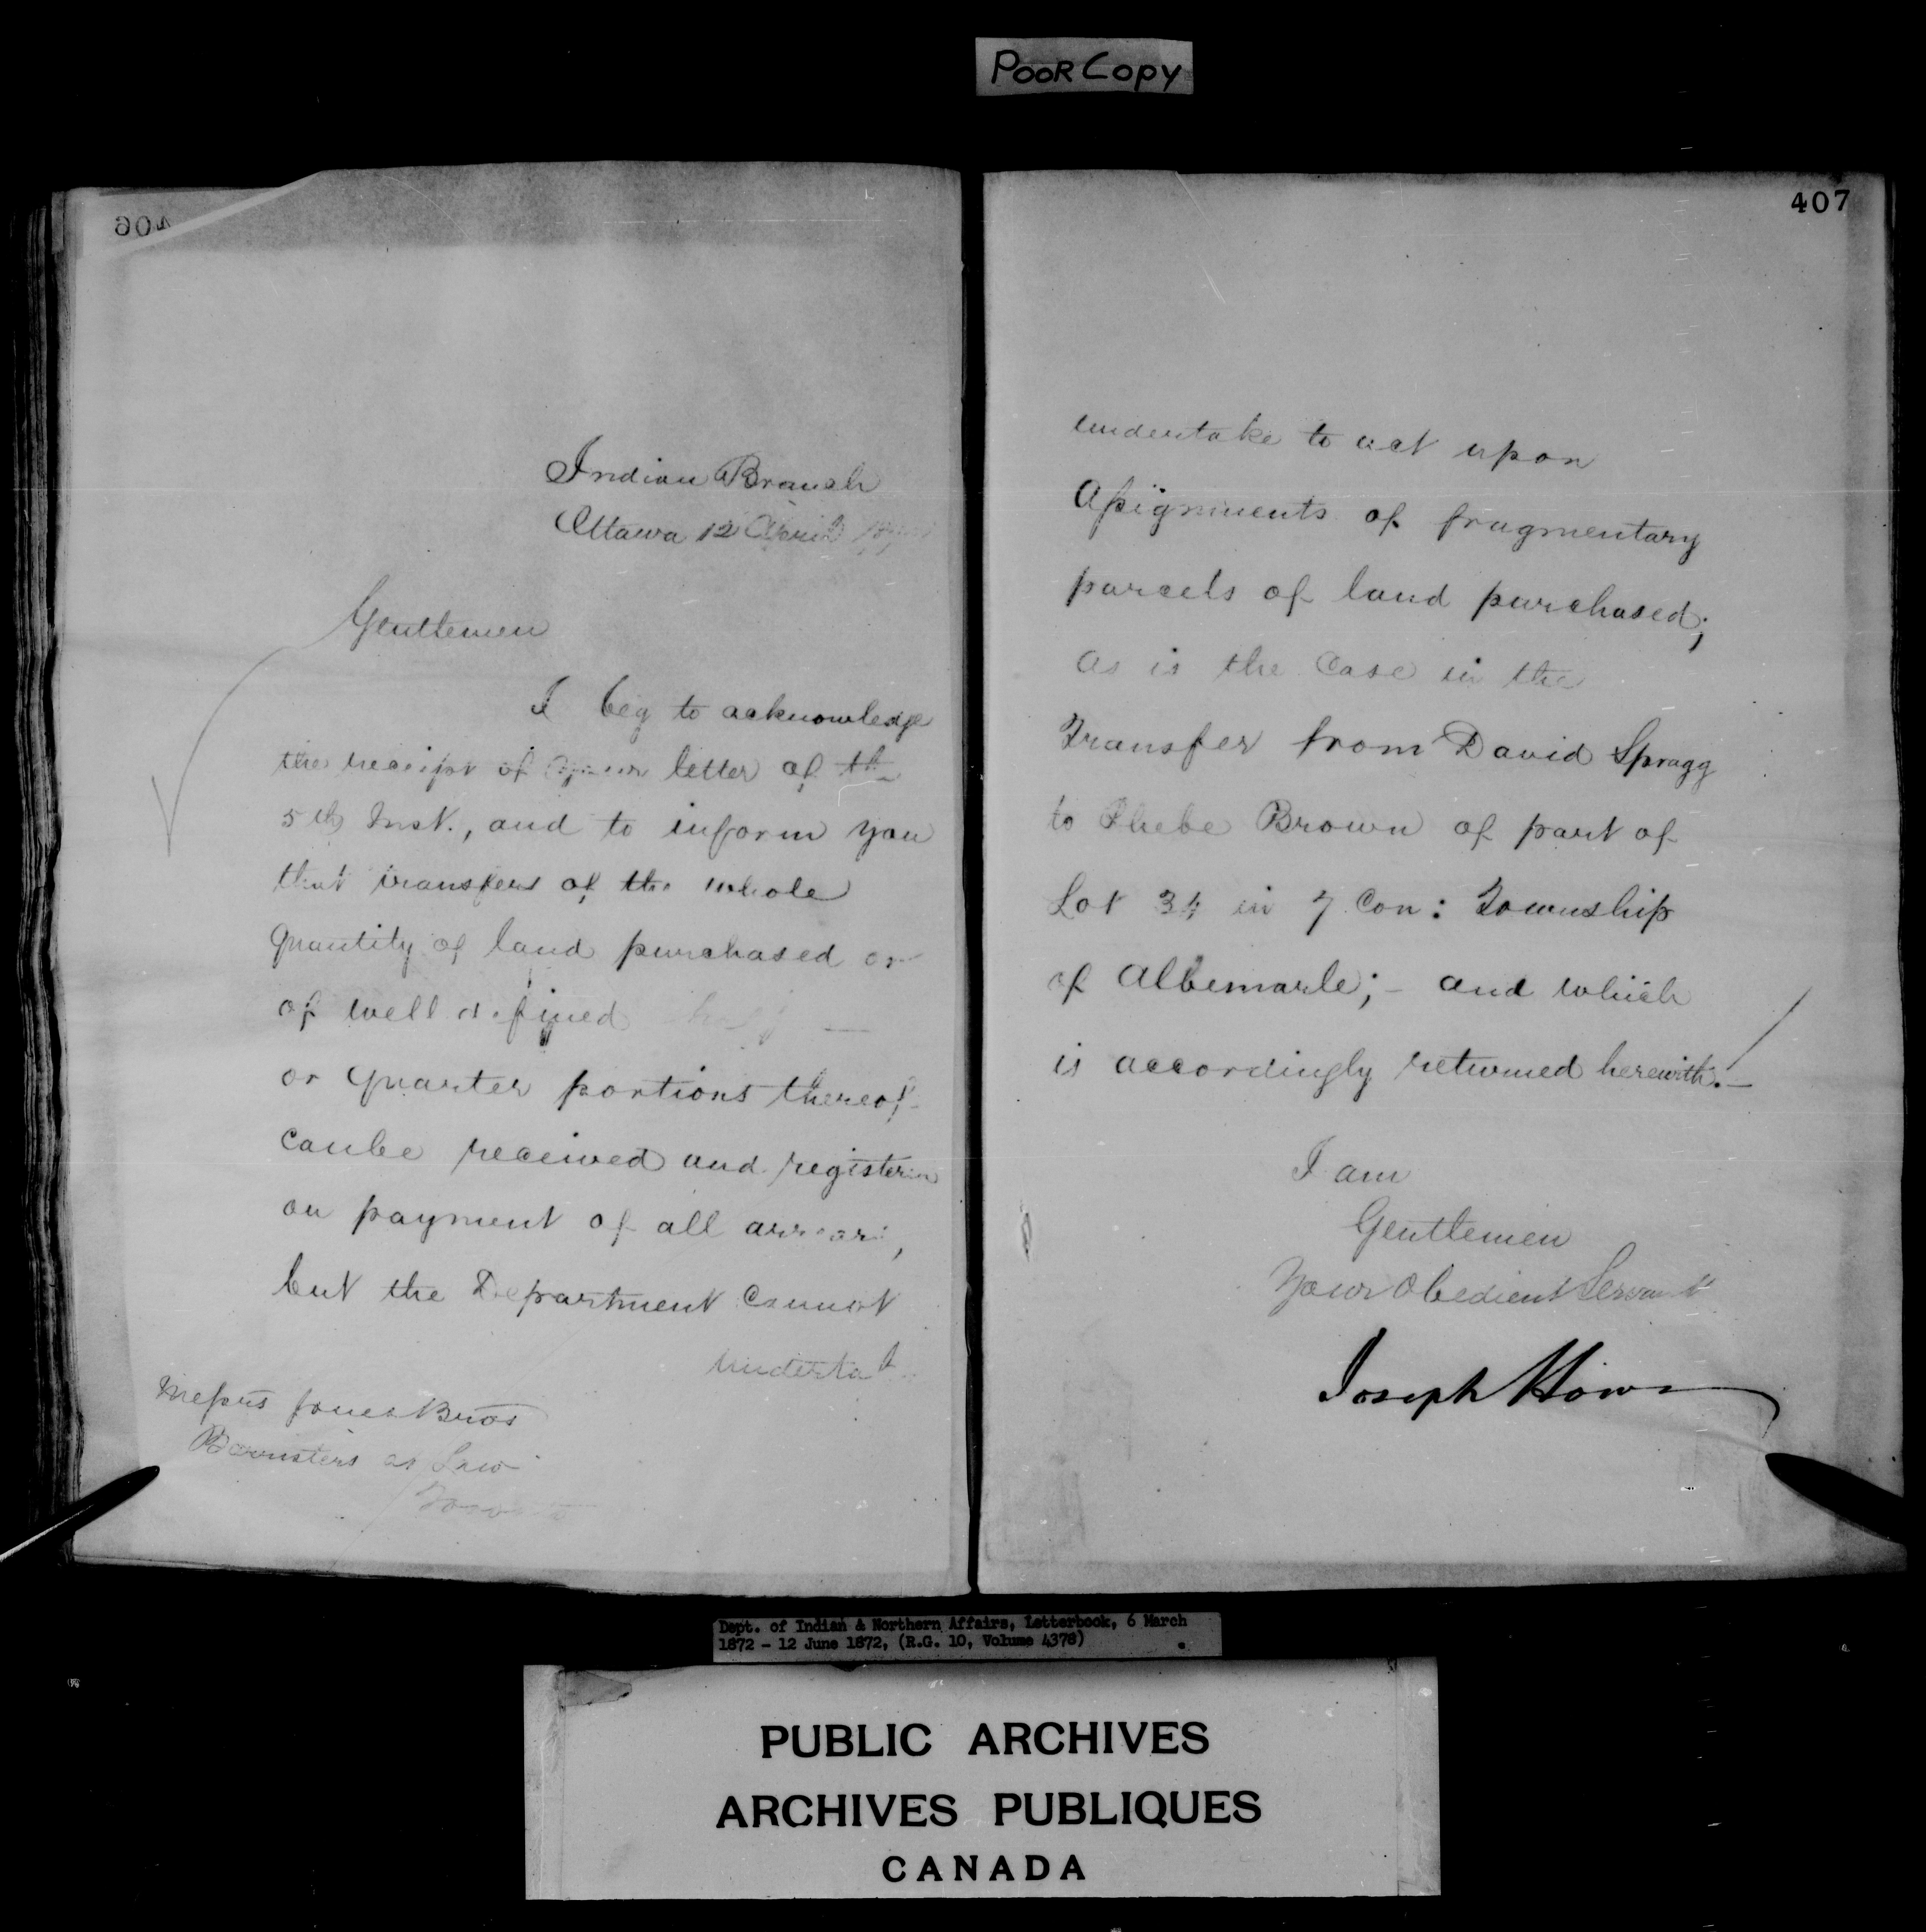 POOR Copy
406
Indian Branch
Ottawa 12 April
Gentlemen
I beg to acknowledge
the receipt of your letter of th
5th Inst., and to inform you
that transfers of the whole
Quantity of land purchased or
of well defined half —
or Quarter portions thereof
can be received and register
on payment of all arrears,
but the Department Cannot
undertak
Messrs Jones Bros
Barristers at Law
Toronto
407
undertake to act upon
Assignments of fragmentary
parcels of land purchased;
as is the Case in the
Transfer from David Spragg
to Phebe Brown of part of
Lot 34 in 7 Con: Township
of Albemarle; - and which
is accordingly returned herewith. —
I am
Gentlemen
Your Obedient Servant
Joseph Howe
Dept. of Indian & Northern Affairs, Letterbook, 6 March
1872 - 12 June 1872, (R.G. 10, Volume 4378)
PUBLIC ARCHIVES
ARCHIVES PUBLIQUES
CANADA